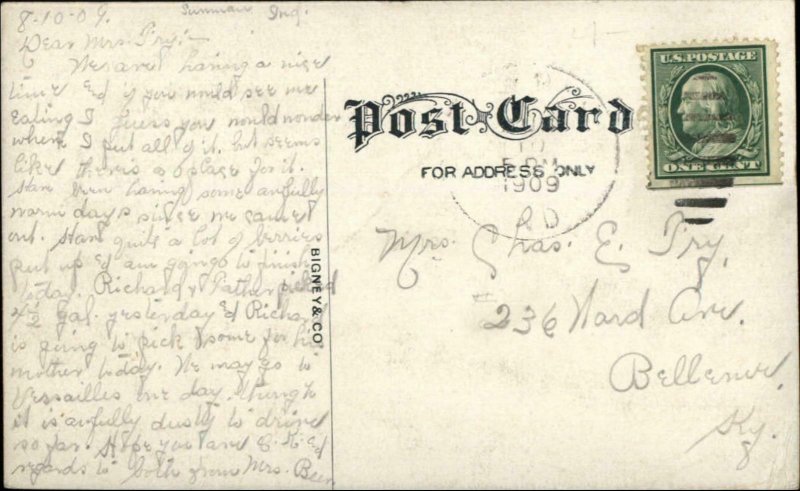 8-10-09. Sunman Ind.
Dear Mrs. Fry:-
We are having a nice
time & if you would see me
eating I guess you would wonder
where I put all of it. but seems
like there is a place for it.
Have been having some awfully
warm days since we came
out. Have quite a lot of berries
put up & am going to finish
today. Richard & Father picked
4½ Gal. yesterday & Richard
is going to pick some for his
mother today. We may go to
Versailles one day though
it is awfully dusty to drive
so far. Hope you are
regards to both from Mrs.
BIGNEY & CO
Post Card
FOR ADDRESS ONLY
U.S. POSTAGE
ONE CENT
PM
1909
Mrs. Chas. E. Fry,
236 Ward Ave.
Bellevue,
Ky.